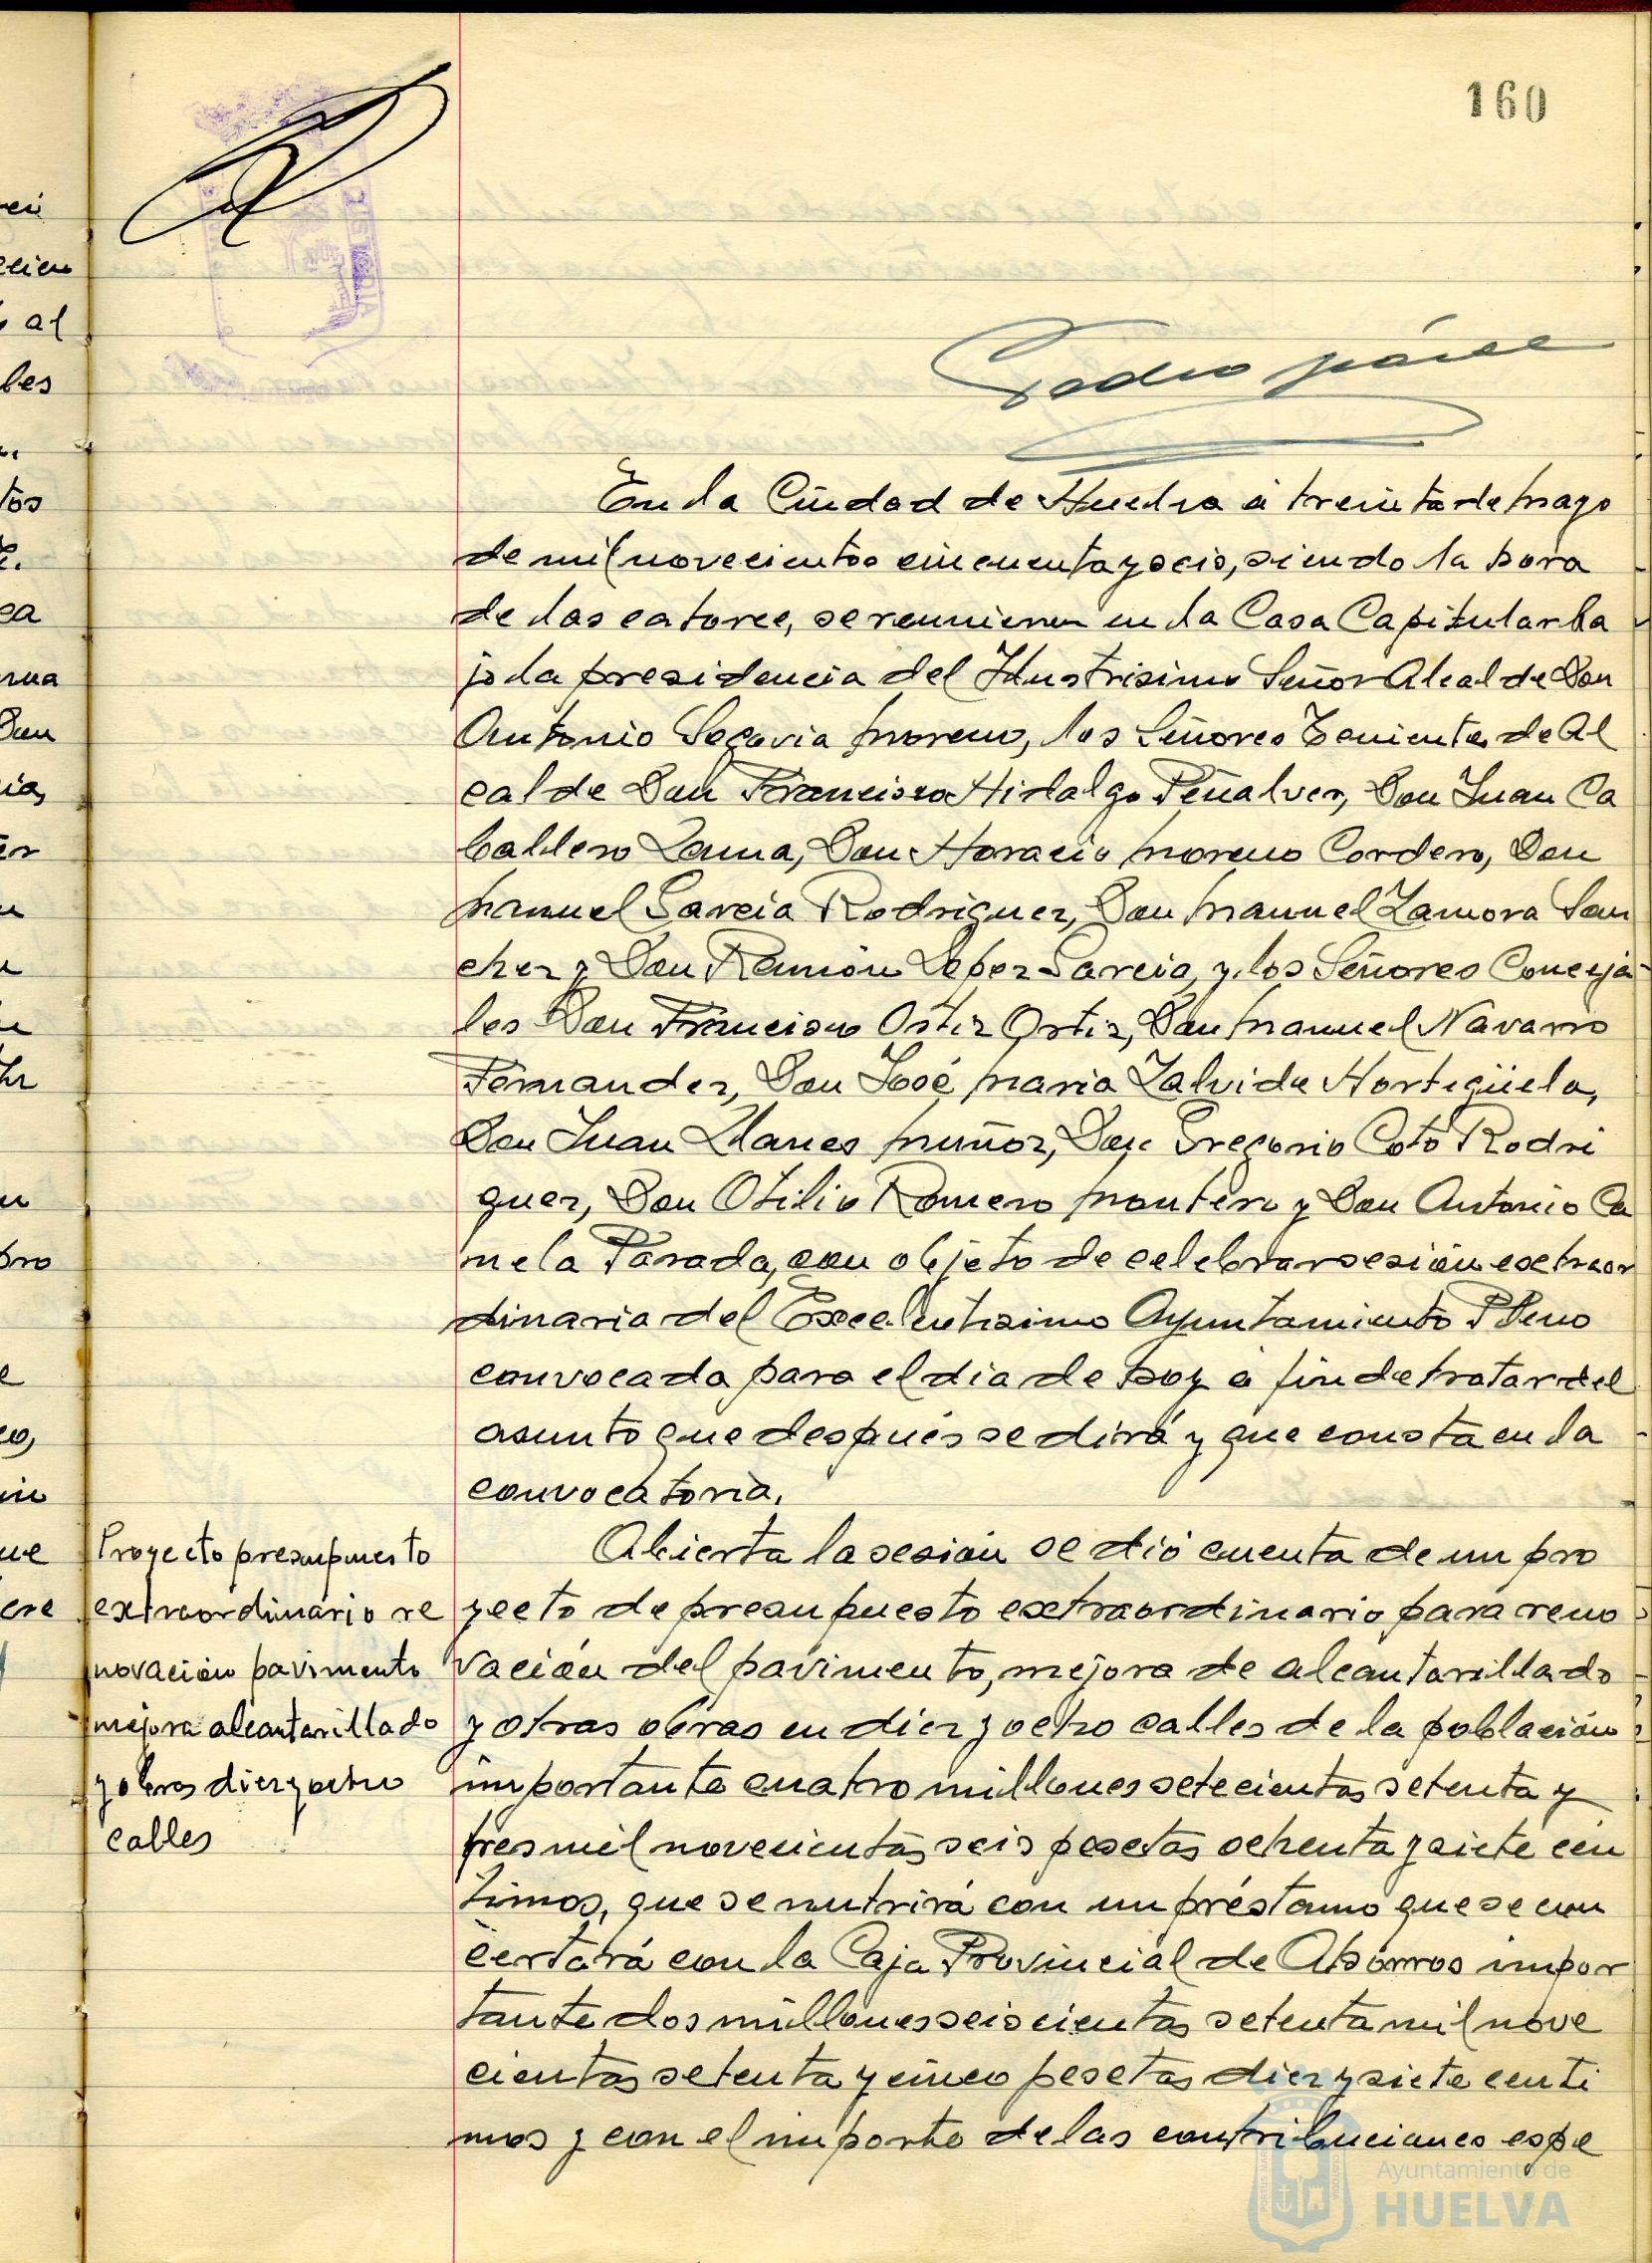 160
En la Ciudad de Huelva a treinta de Mayo
de mil novecientos cincuenta y seis, siendo la hora
de las catorce, se reunieron en la Casa Capitular ba
jo la presidencia del Ilustrisimo Señor Alcalde Don
Antonio Segovia Moreno, los Señores Tenientes de Al
calde Don Francisco Hidalgo Peñalver, Don Juan Ca
ballero Lama, Don Horacio Moreno Cordero, Don
Manuel Garcia Rodriguez, Don Manuel Zamora San
chez y Don Ramón Lopez Garcia, y los Señores Conceja
les Don Francisco Ortiz Ortiz, Don Manuel Navarro
Fernandez, Don José Maria Zalvide Hortigüela,
Don Juan Llanes Muñoz, Don Gregorio Coto Rodri
guez, Don Otilio Romero Montero y Don Antonio Ca
mela Parada, con objeto de celebrar sesión extraor
dinaria del Excelentisimo Ayuntamiento Pleno
convocada para el dia de hoy a fin de tratar del
asunto que después se dirá y que consta en la
convocatoria.
Proyecto presupuesto
extraordinario re
novación pavimento
mejora alcantarillado
y obras diez y ocho
calles
Abierta la sesión se dió cuenta de un pro
yecto de presupuesto extraordinario para reno
vación del pavimento, mejora de alcantarillado
y otras obras en diez y ocho calles de la población
importante cuatro millones setecientas setenta y
tres mil novecientas seis pesetas ochenta y siete cen
timos, que se nutrirá con un préstamo que se con
certará con la Caja Provincial de Ahorros impor
tante dos millones seiscientas setenta mil nove
cientas setenta y cinco pesetas diez y siete centi
mos y con el importe de las contribuciones espe
Ayuntamiento de
HUELVA